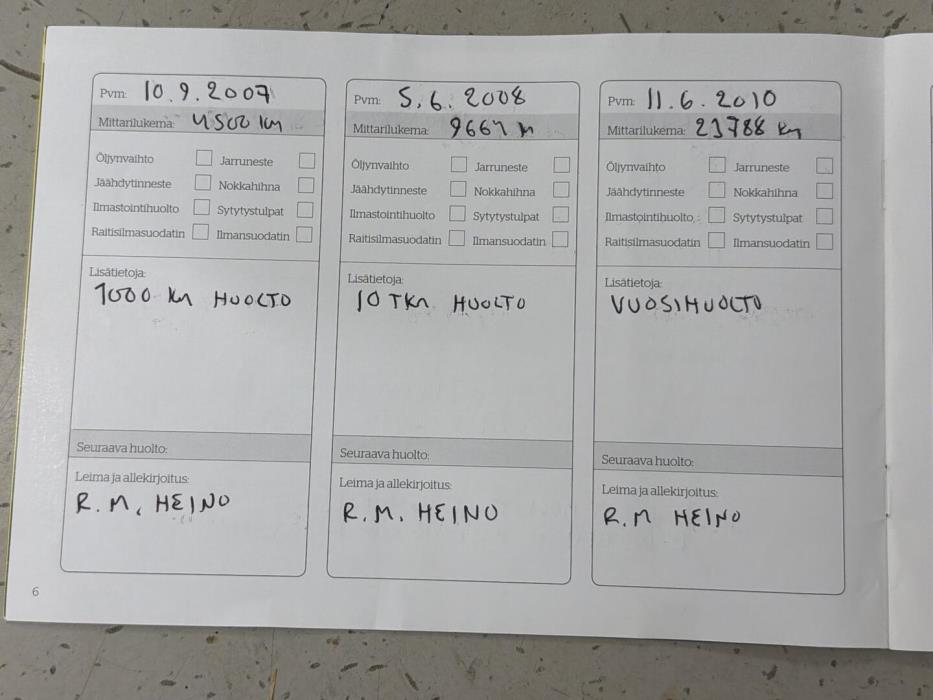 Pvm: 10.9.2007
Mittarilukema: 4500 km
Öljynvaihto Jarruneste
Jäähdytinneste Nokkahihna
Ilmastointihuolto Sytytystulpat
Raitisilmasuodatin Ilmansuodatin
Lisätietoja:
1000 km HUOLTO
Seuraava huolto:
Leima ja allekirjoitus:
R.M. HEINO
Pvm: 5.6.2008
Mittarilukema: 9664 m
Öljynvaihto Jarruneste
Jäähdytinneste Nokkahihna
Ilmastointihuolto Sytytystulpat
Raitisilmasuodatin Ilmansuodatin
Lisätietoja:
10 TKM HUOLTO
Seuraava huolto:
Leima ja allekirjoitus:
R.M. HEINO
Pvm: 11.6.2010
Mittarilukema: 23788 km
Öljynvaihto Jarruneste
Jäähdytinneste Nokkahihna
Ilmastointihuolto Sytytystulpat
Raitisilmasuodatin Ilmansuodatin
Lisätietoja:
VUOSIHUOLTO
Seuraava huolto:
Leima ja allekirjoitus:
R.M HEINO
6